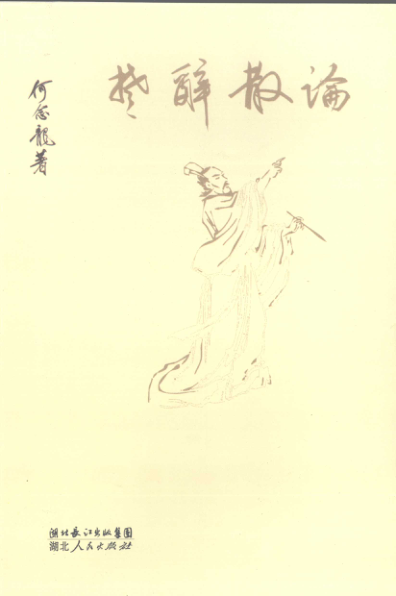 楚辞散论
何念龙著
湖北长江出版集团
湖北人民出版社